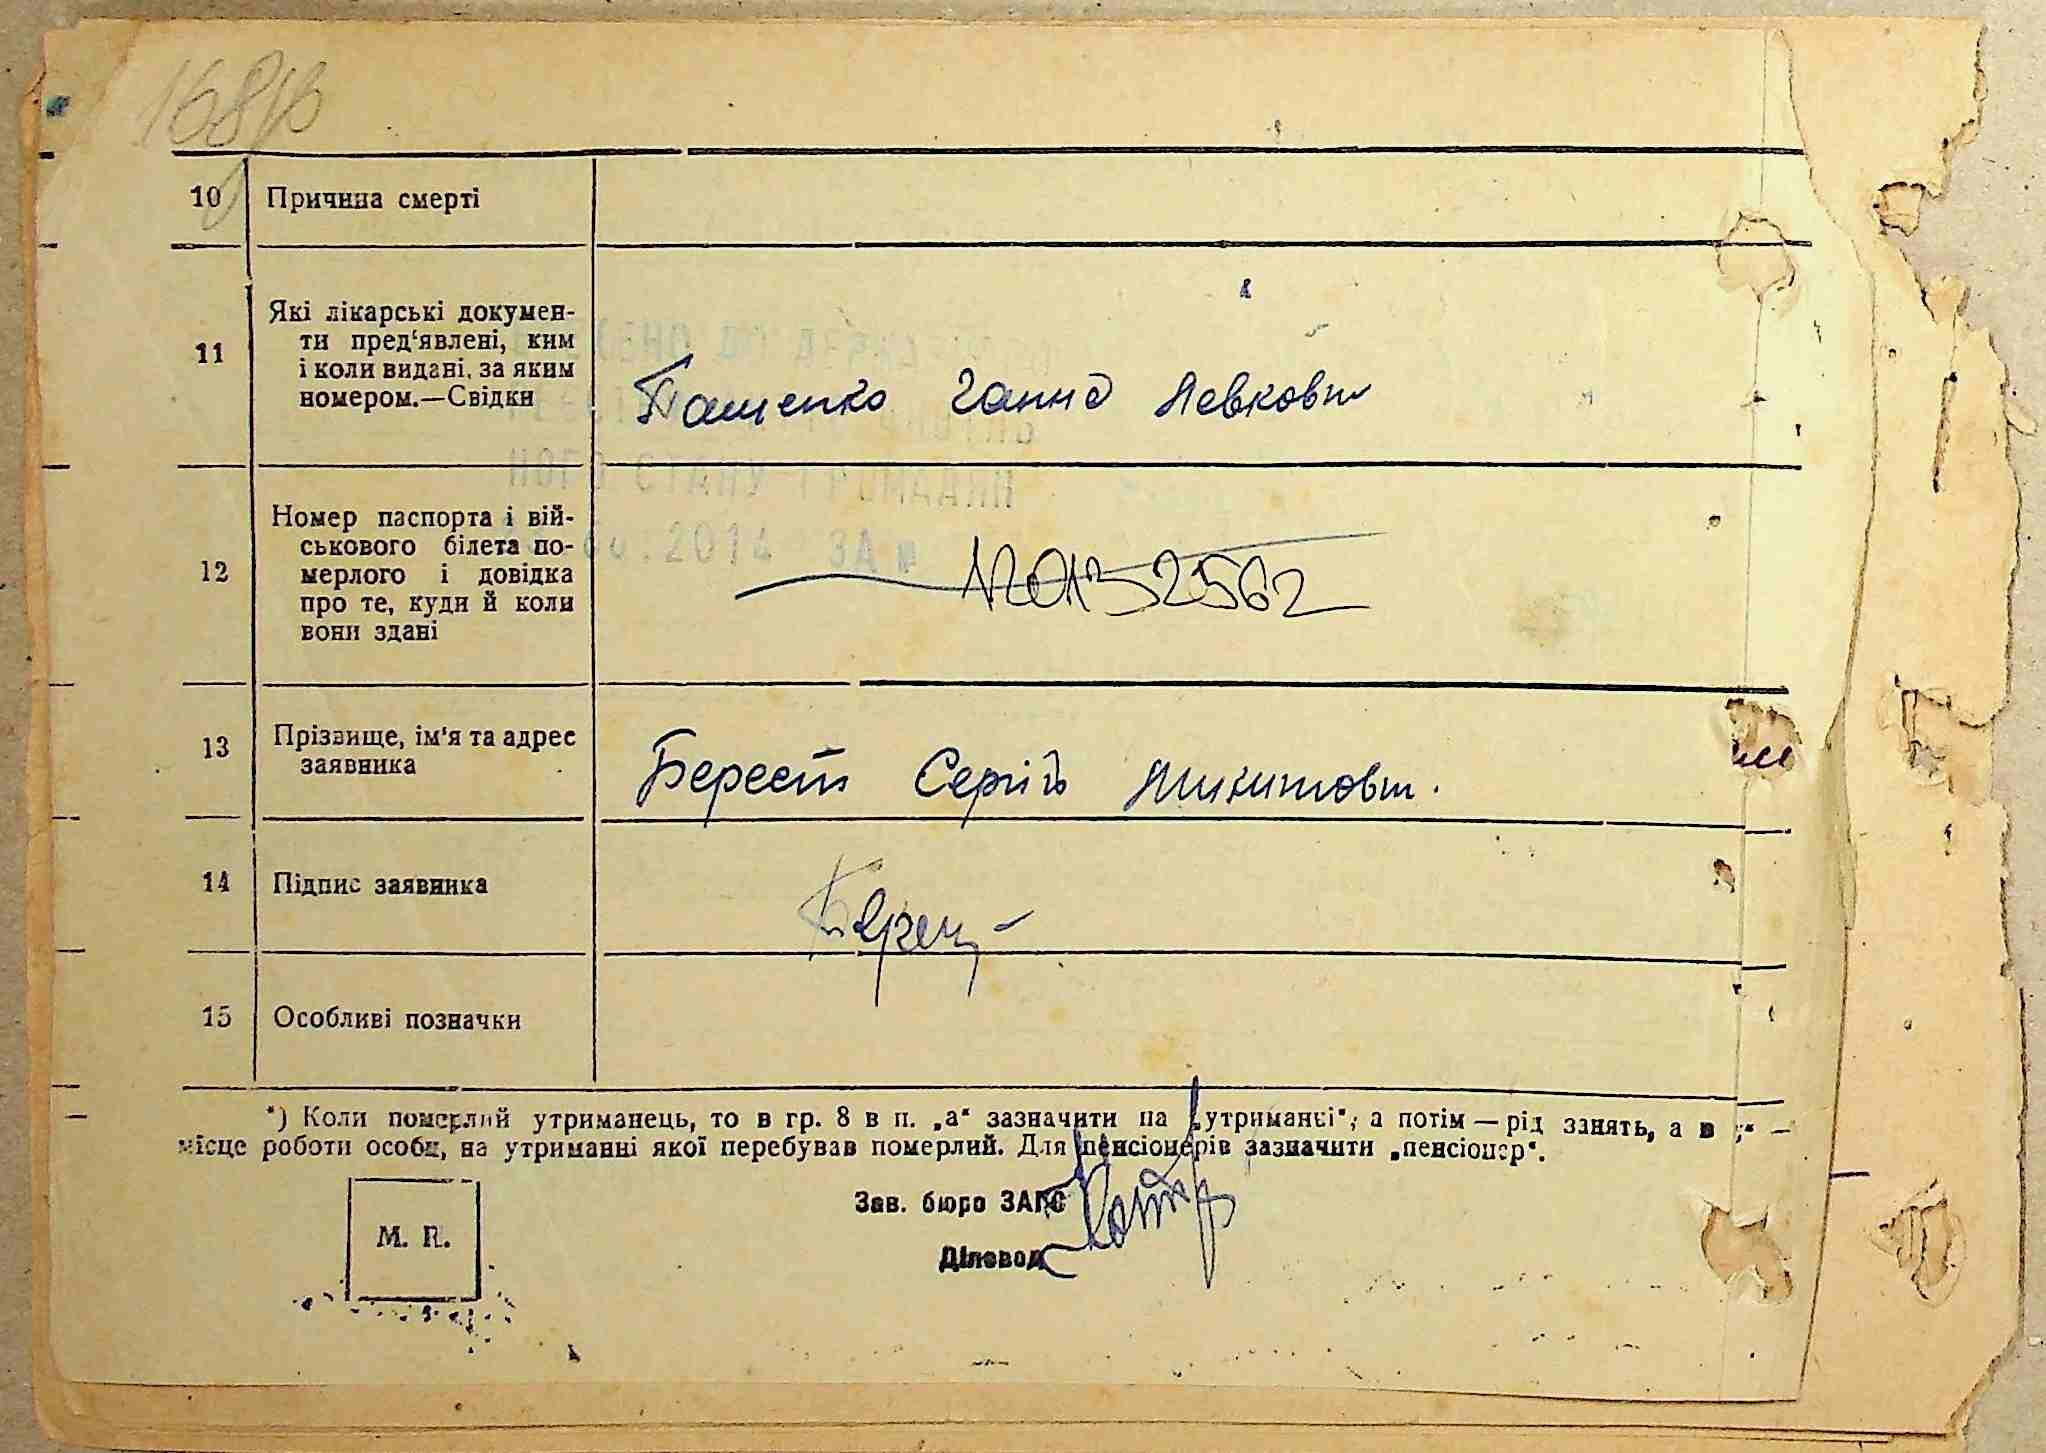 168
10 Причина смерті
11 Які лікарські докумен-
ти пред'явлені, ким
і коли видані, за яким
номером.—Свідки
Пащенко Ганна Левковн
НОГО СТАНУ ГРОМАДЯН
.2014 ЗА №
12 Номер паспорта і вій-
ськового білета по-
мерлого і довідка
про те, куди й коли
вони здані
13 Прізвище, ім'я та адрес
заявника
Берест Сергій Микитович.
14 Підпис заявника
15 Особливі позначки
*) Коли померлий утриманець, то в гр. 8 в п. „а“ зазначити на „утриманні“, а потім — рід занять, а в —
місце роботи особи, на утриманні якої перебував померлий. Для пенсіонерів зазначити „пенсіонер“.
М. П.
Зав. бюро ЗАГС
Діловод